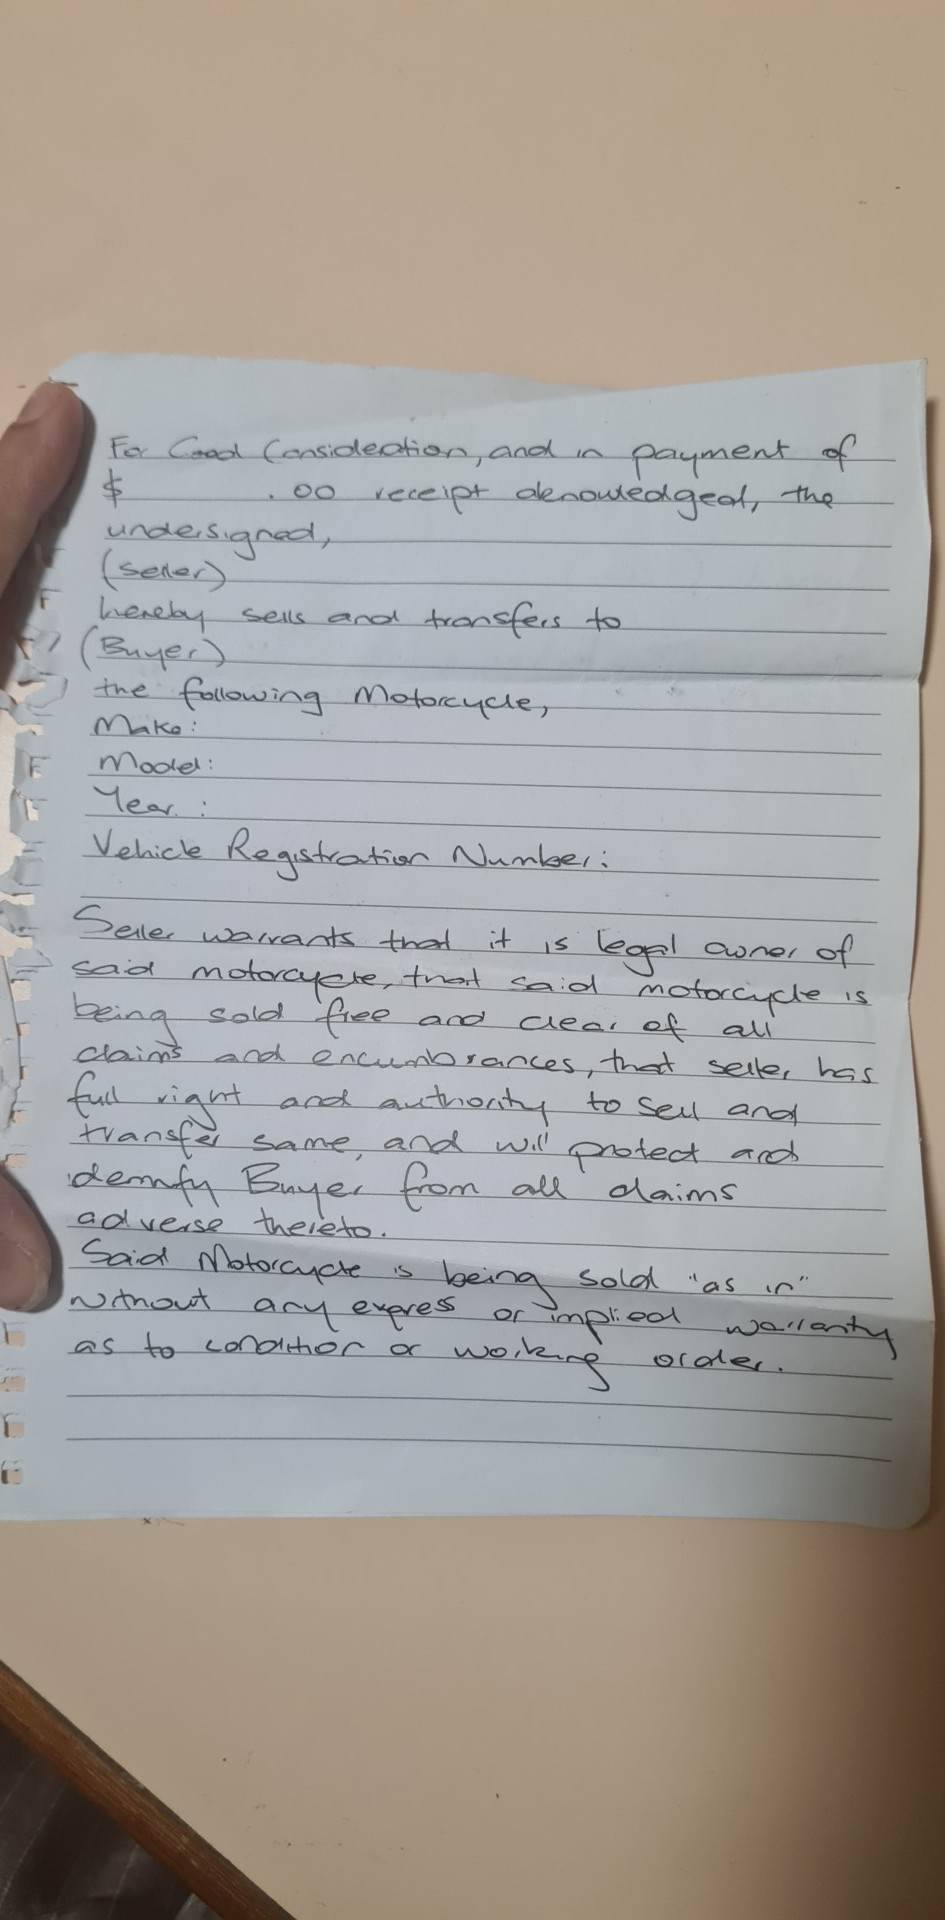 For Good Consideration, and in payment of
$ .00 receipt aknowledged, the
undersigned,
(Seller)
hereby sells and transfers to
(Buyer)
the following Motorcycle,
Make:
Model:
Year:
Vehicle Registration Number:
Seller warrants that it is legal owner of
said motorcycle, that said motorcycle is
being sold free and clear of all
claims and encumbrances, that seller has
full right and authority to sell and
transfer same, and will protect and
idemnfy Buyer from all claims
adverse thereto.
Said Motorcycle is being sold "as in"
without any express or implied warranty
as to condition or working order.